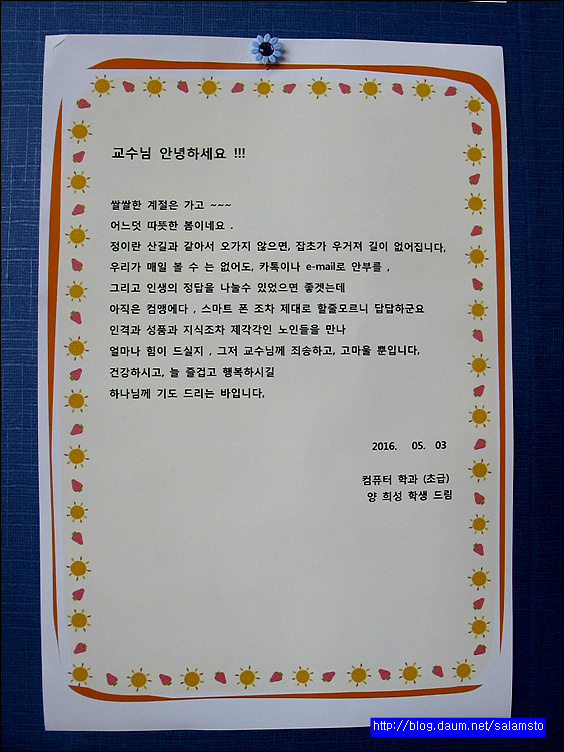 교수님 안녕하세요 !!!
쌀쌀한 계절은 가고 ~~~
어느덧 따뜻한 봄이네요 .
정이란 산길과 같아서 오가지 않으면, 잡초가 우거져 길이 없어집니다,
우리가 매일 볼 수 는 없어도, 카톡이나 e-mail로 안부를 ,
그리고 인생의 정답을 나눌수 있었으면 좋겟는데
아직은 컴맹에다 , 스마트 폰 조차 제대로 할줄모르니 답답하군요
인격과 성품과 지식조차 제각각인 노인들을 만나
얼마나 힘이 드실지 , 그저 교수님께 죄송하고, 고마울 뿐입니다,
건강하시고, 늘 즐겁고 행복하시길
하나님께 기도 드리는 바입니다,
2016. 05. 03
컴퓨터 학과 (초급)
양 희성 학생 드림
http://blog.daum.net/salamsto